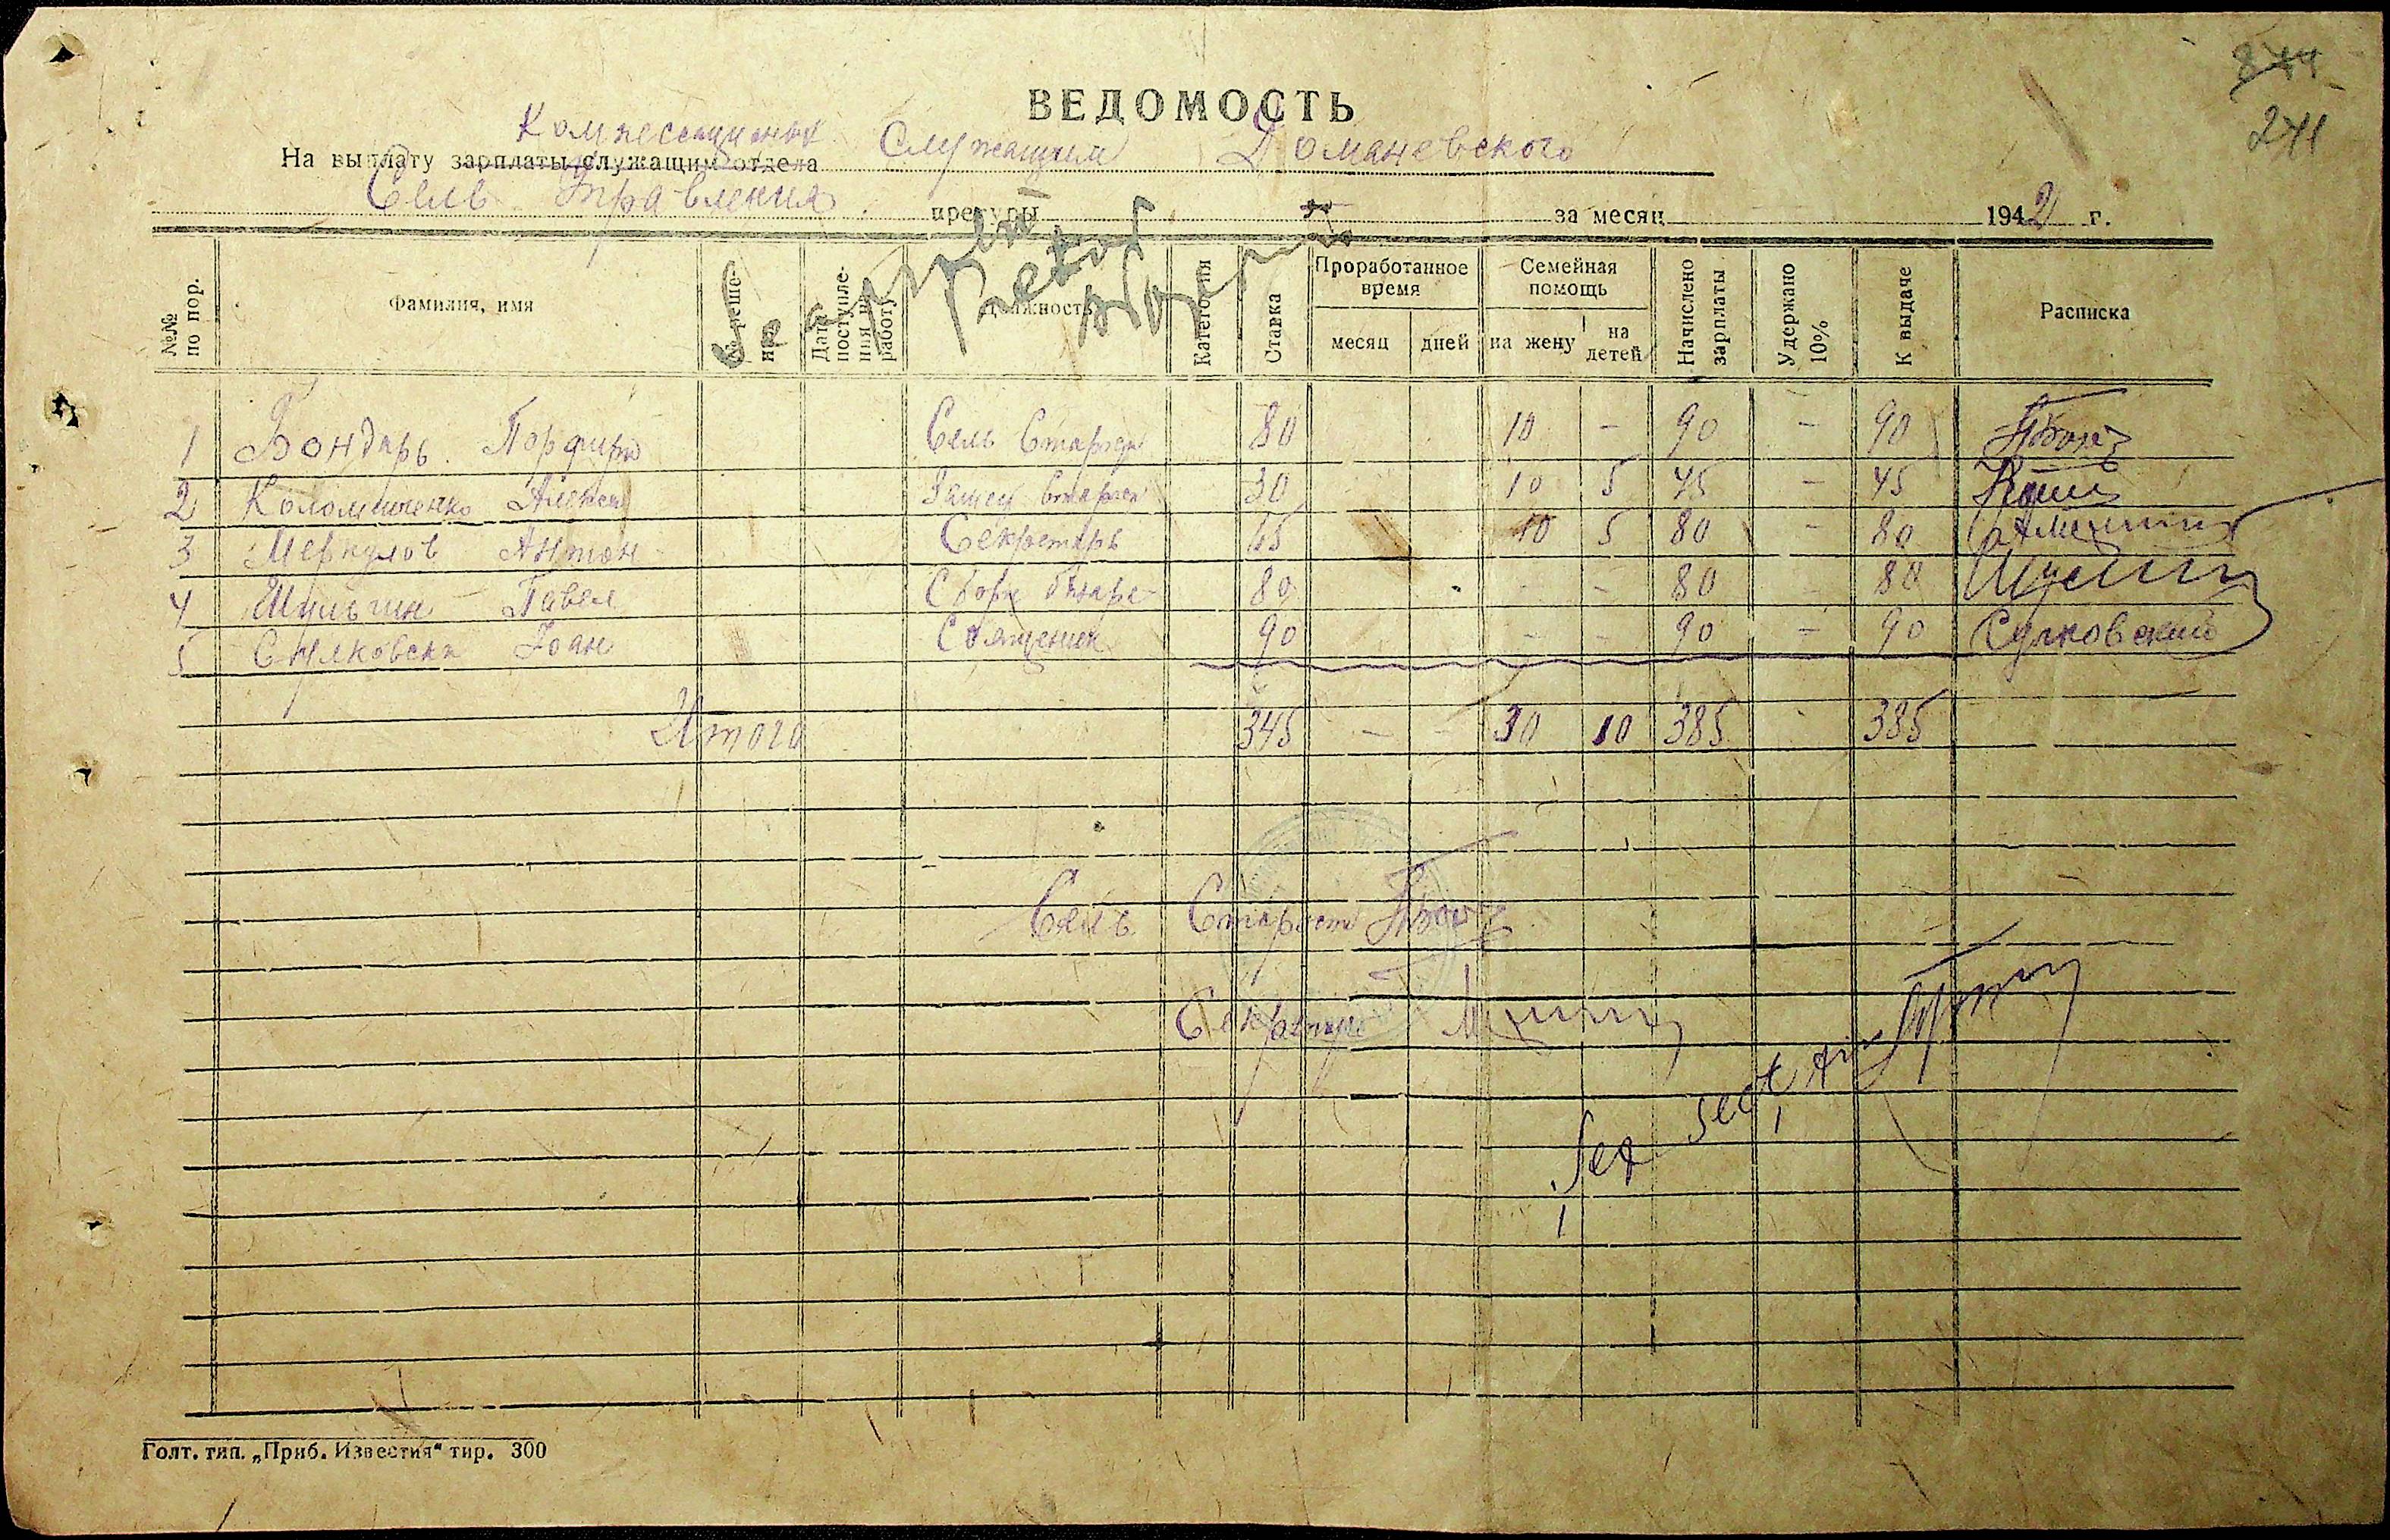 844
241
ВЕДОМОСТЬ
На выплату зарплаты служащим отдела Служащим Доманевского
Сель Правления претуры за месяц 1942 г.
№№ по пор.
Фамилия, имя
Дата поступления на работу
Должность
Категория
Ставка
Проработанное время
месяц
дней
Семейная помощь
на жену
на детей
Начислено зарплаты
Удержано 10%
К выдаче
Расписка
1 Бондарь Порфири Сель Старост 80 10 - 90 - 90
2 Коломиченко Алексей 30 10 5 45 - 45
3 Меркулов Антон Секретарь 65 10 5 80 - 80
4 Шульгин Павел 80 - - 80 - 80 Шульгин
5 Сулковски Іоан Священик 90 - - 90 - 90 Сулковский
Итого 345 - - 30 10 385 - 385
Сель Староста
Секретарь
Голт. тип. „Приб. Известия“ тир. 300